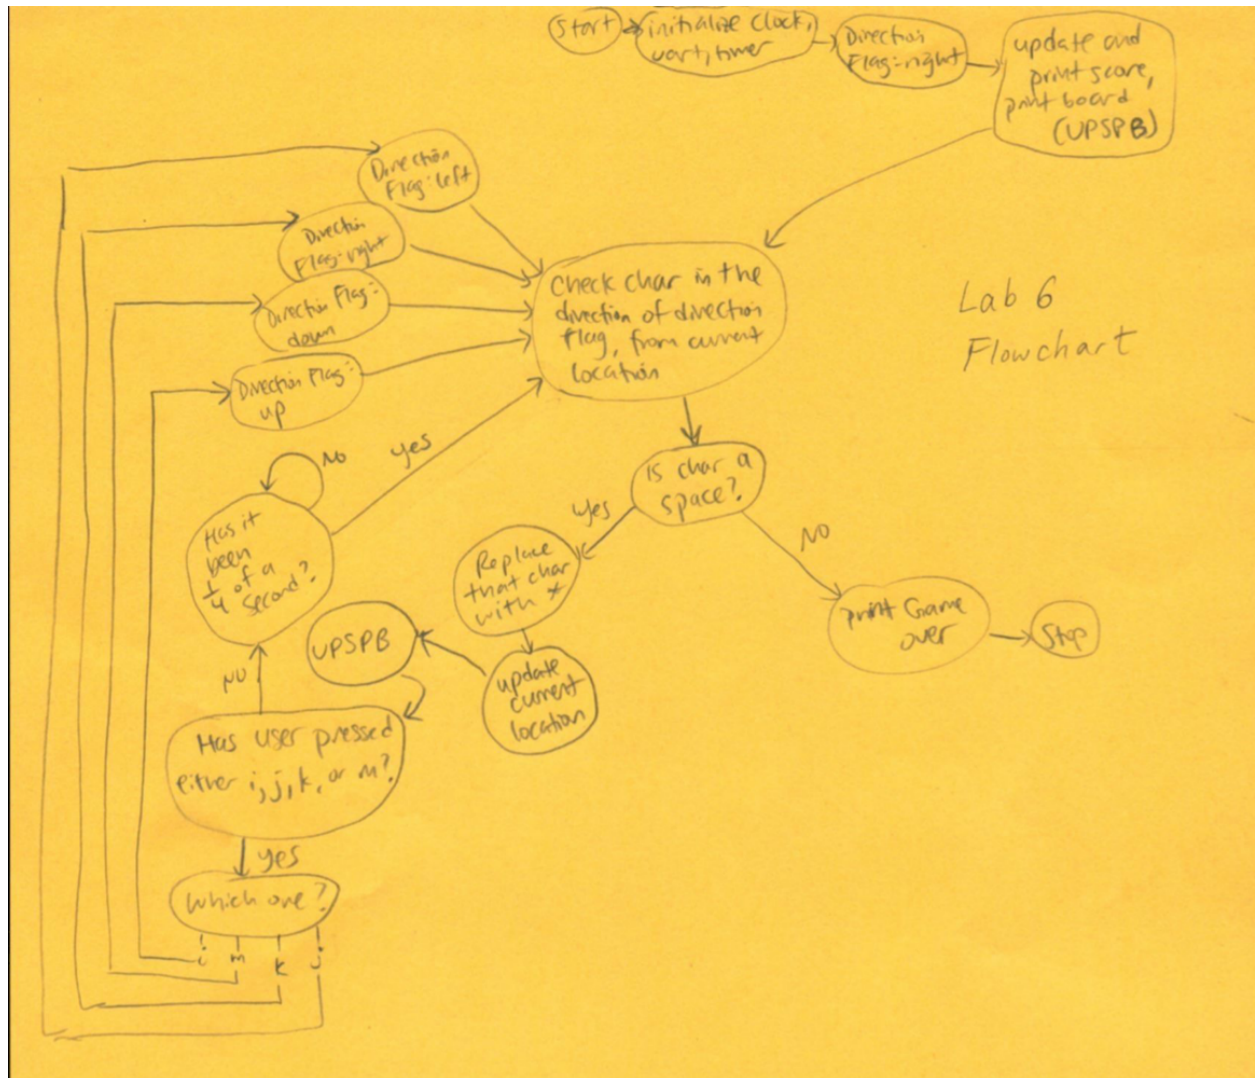 Start
initialize Clock,
uart, timer
Direction
Flag=right
update and
print score,
print board
(UPSPB)
Direction
Flag=left
Direction
Flag=right
Direction Flag=
down
Direction Flag=
up
check char in the
direction of direction
flag, from current
location
Lab 6
Flowchart
NO
yes
Has it
been
1/4 of a
second?
Is char a
space?
yes
NO
Replace
that char
with *
print Game
over
Stop
UPSPB
update
current
location
NO
Has user pressed
either i, j, k, or m?
yes
Which one?
i
m
k
j